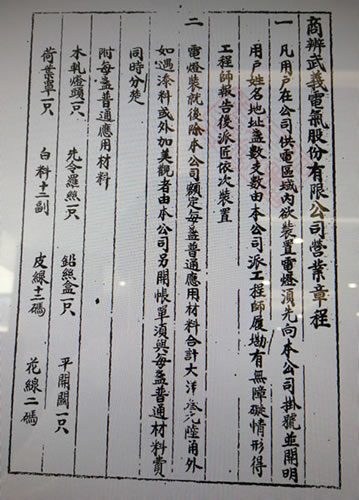 商辦武義電氣股份有限公司營業章程
一 凡用户在公司供電區域內欲裝置電燈須先向本公司掛號並開明
用户姓名地址盞數支數由本公司派工程師履勘有無障礙情形得
工程師報告後派匠依次裝置
二 電燈裝就後除本公司額定每盞普通應用材料合計大洋叁元陸角外
如遇添料或外加美觀者由本公司另開帳單須與每盞普通材料費
同時分楚
附每盞普通應用材料
木軋燈頭一只 先令羅絲一只 鉛絲盒一只 平開關一只
荷葉罩一只 白料十二副 皮線十二碼 花線二碼